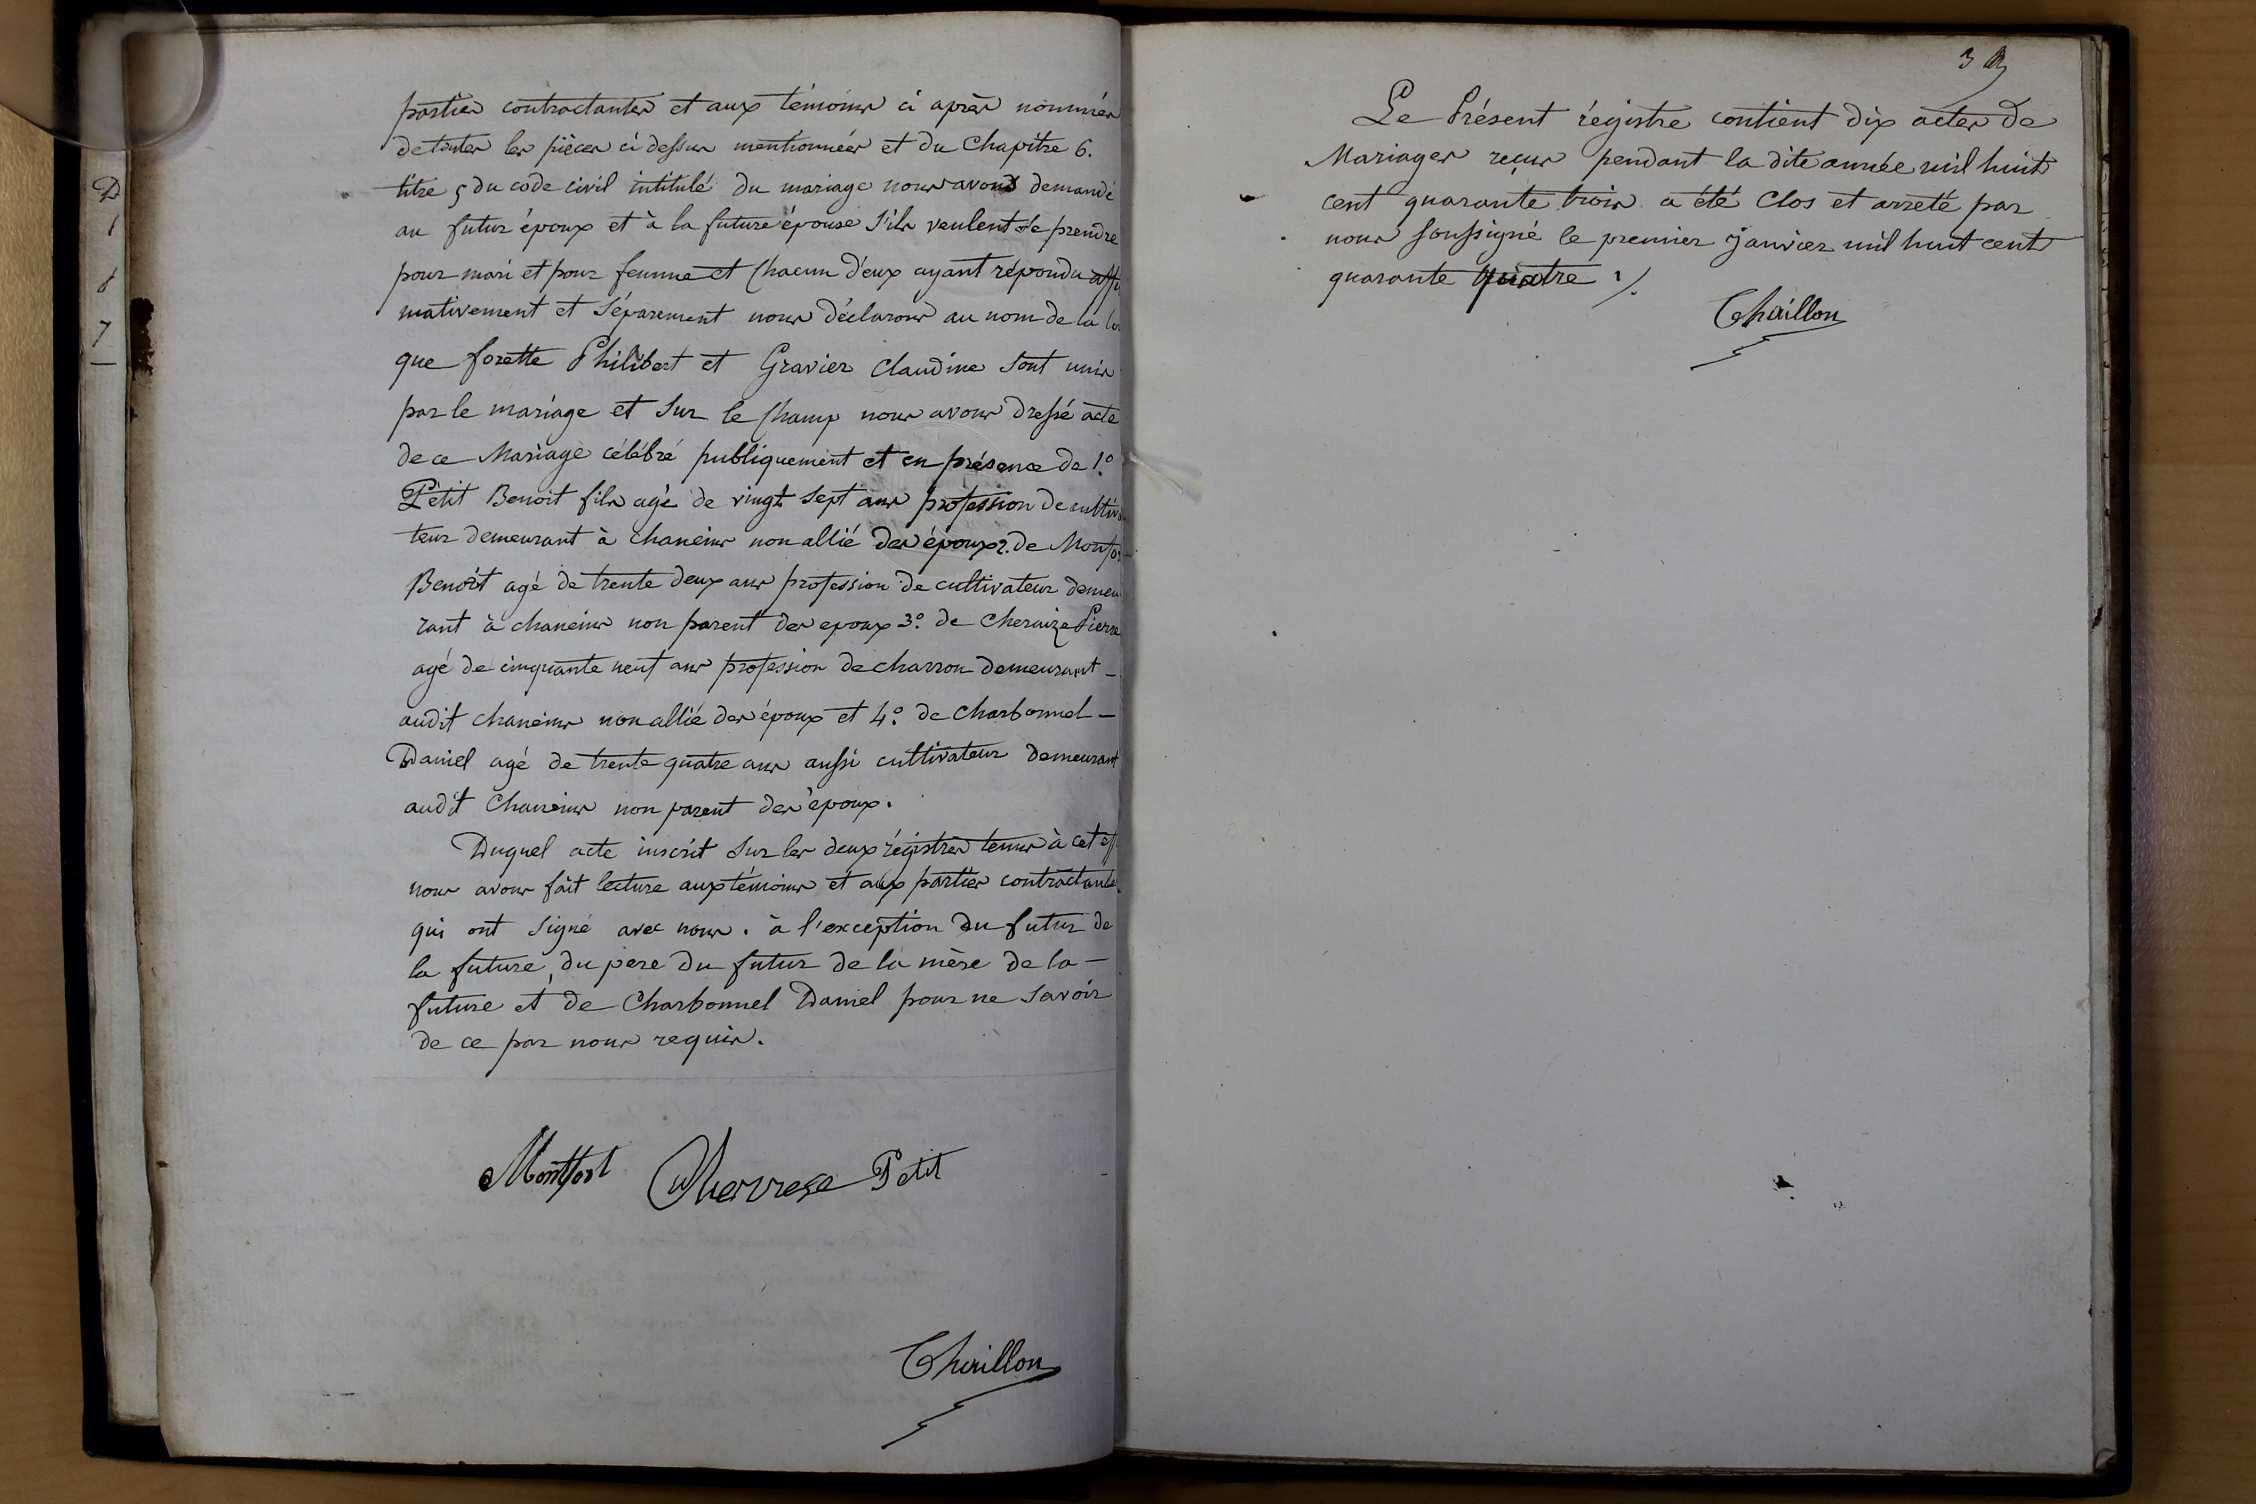 D
1
8
7
parties contractantes et aux témoins ci après nommés
de toutes les pièces ci dessus mentionnées et du Chapitre 6.
titre 5 du code civil intitulé du mariage nous avons demandé
au futur époux et à la future épouse s'ils veulent se prendre
pour mari et pour femme et chacun d'eux ayant répondu affir
mativement et séparement nous déclarons au nom de la loi
que forette Philibert et Gravier Claudine sont unis
par le mariage et sur le champ nous avons dressé acte
de ce Mariage célébré publiquement et en présence de 1.°
Petit Benoit fils agé de vingt sept ans profession de cultiva
teur demeurant à chaneins non allié des époux 2. de Monfor
Benoit agé de trente deux ans profession de cultivateur demeu
rant à chaneins non parent des epoux 3.° de Pierre
agé de cinquante neuf ans profession de charron demeurant –
audit chaneins non allié des époux et 4.° de Charbonnel –
Daniel agé de trente quatre ans aussi cultivateur demeurant
audit Chaneins non parent des époux.
Duquel acte inscrit sur les deux régistres tenus à cet eff
nous avons fait lecture aux témoins et aux parties contractantes
qui ont signé avec nous. à l'exception du futur de
la future, du pere du futur de la mère de la –
future et de Charbonnel Daniel pour ne savoir
de ce par nous requis.
Montfort Petit
Thoillon
3
Le Présent régistre contient dix actes de
Mariages reçus pendant la dite année mil huit
cent quarante trois a été Clos et arreté par
nous soussigné le premier janvier mil huit cent
quarante quatre ./.
Thoillon